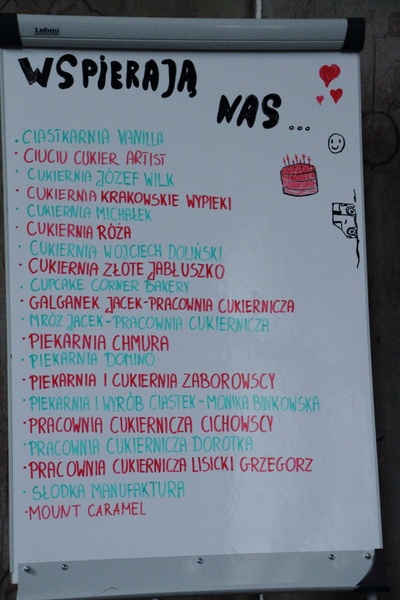 Lobos
WSPIERAJĄ
NAS...
• CIASTKARNIA VANILLA
• CIUCIU CUKIER ARTIST
• CUKIERNIA JÓZEF WILK
• CUKIERNIA KRAKOWSKIE WYPIEKI
• CUKIERNIA MICHAŁEK
• CUKIERNIA RÓŻA
• CUKIERNIA WOJCIECH DOLIŃSKI
• CUKIERNIA ZŁOTE JABŁUSZKO
• CUPCAKE CORNER BAKERY
• GALGANEK JACEK-PRACOWNIA CUKIERNICZA
• MRÓZ JACEK-PRACOWNIA CUKIERNICZA
• PIEKARNIA CHMURA
• PIEKARNIA DOMINO
• PIEKARNIA I CUKIERNIA ZABOROWSCY
• PIEKARNIA I WYRÓB CIASTEK-MONIKA BINKOWSKA
• PRACOWNIA CUKIERNICZA CICHOWSCY
• PRACOWNIA CUKIERNICZA DOROTKA
• PRACOWNIA CUKIERNICZA LISICKI GRZEGORZ
• SŁODKA MANUFAKTURA
• MOUNT CARAMEL